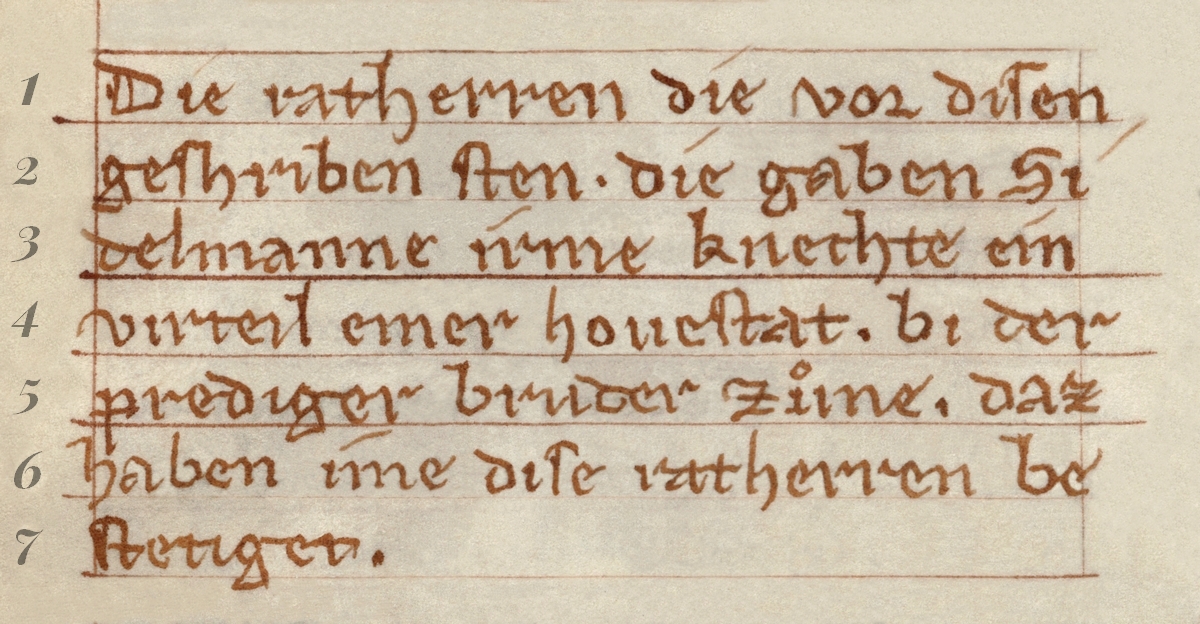 1 Die ratherren die vor disen
2 geshriben sten · die gaben Si
3 delmanne irme knechte ein
4 virteil einer houestat . bi der
5 prediger bruder zůme . daz
6 haben ime dise ratherren be
7 stetiget .